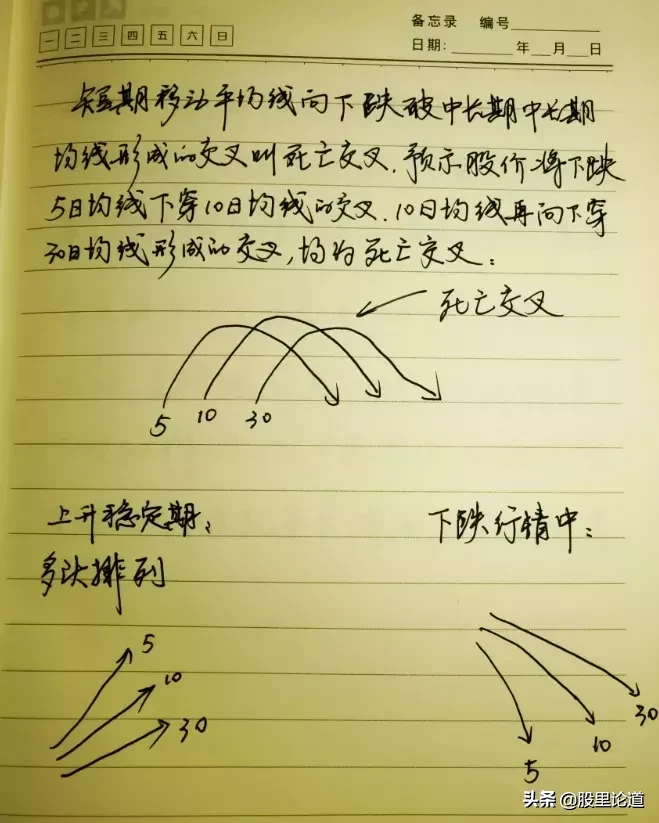 备忘录 编号
一 二 三 四 五 六 日
日期: 年 月 日
短期移动平均线向下跌破中长期中长期
均线形成的交叉叫死亡交叉.预示股价将下跌
5日均线下穿10日均线的交叉.10日均线再向下穿
30日均线形成的交叉,均为死亡交叉:
死亡交叉
5 10 30
上升稳定期: 下跌行情中:
多头排列
5
10
30
30
10
5
头条 @股里论道